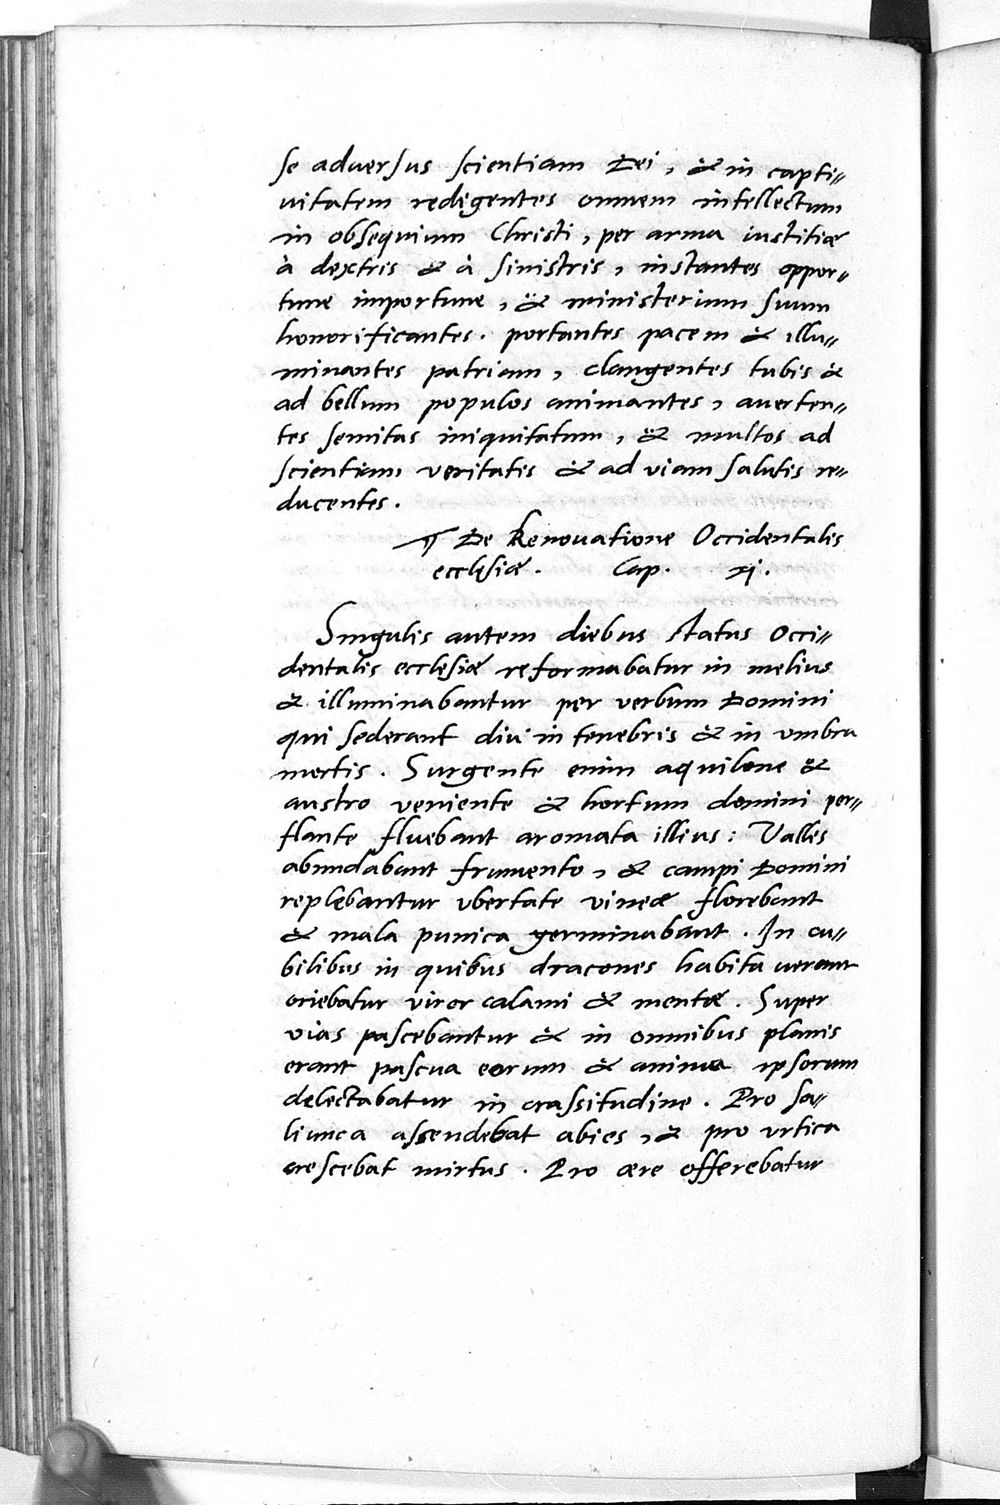 se aduersus scientiam Dei, & in capti=
uitatem redigentes omnem intellectum
in obsequium Christi, per arma iustitiæ
à dextris & à sinistris, instantes oppor=
tune importune, & ministerium suum
honorificantes. portantes pacem & illu=
minantes patriam, clangentes tubis &
ad bellum populos animantes, auerten=
tes semitas iniquitatum, & multos ad
scientiam veritatis & ad viam salutis re=
ducentes.
¶ De Renouatione Occidentalis
ecclesiæ. Cap. xj.
Singulis autem diebus status Occi=
dentalis ecclesiæ reformabatur in melius
& illuminabantur per verbum Domini
qui sederant diu in tenebris & in vmbra
mortis. Surgente enim aquilone &
austro veniente & hortum domini per=
flante fluebant aromata illius: Valles
abundabant frumento, & campi Domini
replebantur vbertate vineæ florebant
& mala punica germinabant. In cu=
bilibus in quibus dracones habitauerant
oriebatur viror calami & mentæ. Super
vias pascebantur & in omnibus planis
erant pascua eorum & anima ipsorum
delectabatur in crassitudine. Pro sa=
liunca assendebat abies, & pro vrtica
crescebat mirtus. Pro ære offerebatur